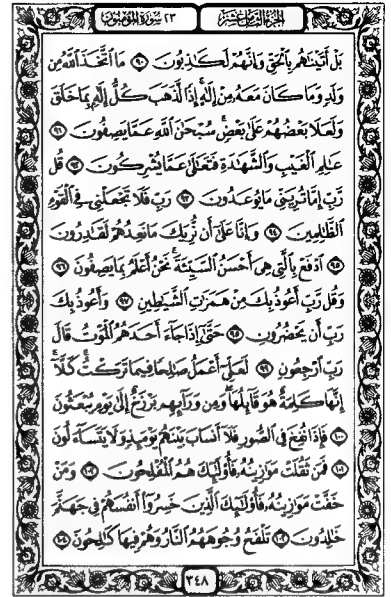 الجزء الثامن عشر ٢٣ سورة المؤمنون
بَلْ أَتَيْنَٰهُم بِٱلْحَقِّ وَإِنَّهُمْ لَكَٰذِبُونَ ٩٠ مَا ٱتَّخَذَ ٱللَّهُ مِن
وَلَدٍ وَمَا كَانَ مَعَهُۥ مِنْ إِلَٰهٍ إِذًا لَّذَهَبَ كُلُّ إِلَٰهٍۭ بِمَا خَلَقَ
وَلَعَلَا بَعْضُهُمْ عَلَىٰ بَعْضٍ سُبْحَٰنَ ٱللَّهِ عَمَّا يَصِفُونَ ٩١
عَٰلِمِ ٱلْغَيْبِ وَٱلشَّهَٰدَةِ فَتَعَٰلَىٰ عَمَّا يُشْرِكُونَ ٩٢ قُل
رَّبِّ إِمَّا تُرِيَنِّى مَا يُوعَدُونَ ٩٣ رَبِّ فَلَا تَجْعَلْنِى فِى ٱلْقَوْمِ
ٱلظَّٰلِمِينَ ٩٤ وَإِنَّا عَلَىٰٓ أَن نُّرِيَكَ مَا نَعِدُهُمْ لَقَٰدِرُونَ
٩٥ ٱدْفَعْ بِٱلَّتِى هِىَ أَحْسَنُ ٱلسَّيِّئَةَ نَحْنُ أَعْلَمُ بِمَا يَصِفُونَ ٩٦
وَقُل رَّبِّ أَعُوذُ بِكَ مِنْ هَمَزَٰتِ ٱلشَّيَٰطِينِ ٩٧ وَأَعُوذُ بِكَ
رَبِّ أَن يَحْضُرُونِ ٩٨ حَتَّىٰٓ إِذَا جَآءَ أَحَدَهُمُ ٱلْمَوْتُ قَالَ
رَبِّ ٱرْجِعُونِ ٩٩ لَعَلِّىٓ أَعْمَلُ صَٰلِحًا فِيمَا تَرَكْتُ كَلَّآ
إِنَّهَا كَلِمَةٌ هُوَ قَآئِلُهَا وَمِن وَرَآئِهِم بَرْزَخٌ إِلَىٰ يَوْمِ يُبْعَثُونَ
١٠٠ فَإِذَا نُفِخَ فِى ٱلصُّورِ فَلَآ أَنسَابَ بَيْنَهُمْ يَوْمَئِذٍ وَلَا يَتَسَآءَلُونَ
١٠١ فَمَن ثَقُلَتْ مَوَٰزِينُهُۥ فَأُو۟لَٰٓئِكَ هُمُ ٱلْمُفْلِحُونَ ١٠٢ وَمَنْ
خَفَّتْ مَوَٰزِينُهُۥ فَأُو۟لَٰٓئِكَ ٱلَّذِينَ خَسِرُوٓا۟ أَنفُسَهُمْ فِى جَهَنَّمَ
خَٰلِدُونَ ١٠٣ تَلْفَحُ وُجُوهَهُمُ ٱلنَّارُ وَهُمْ فِيهَا كَٰلِحُونَ ١٠٤
٣٤٨